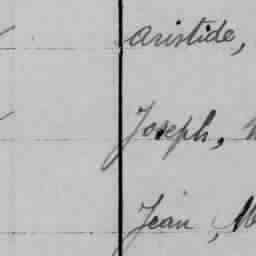 Aristide,
Joseph,
Jean, M